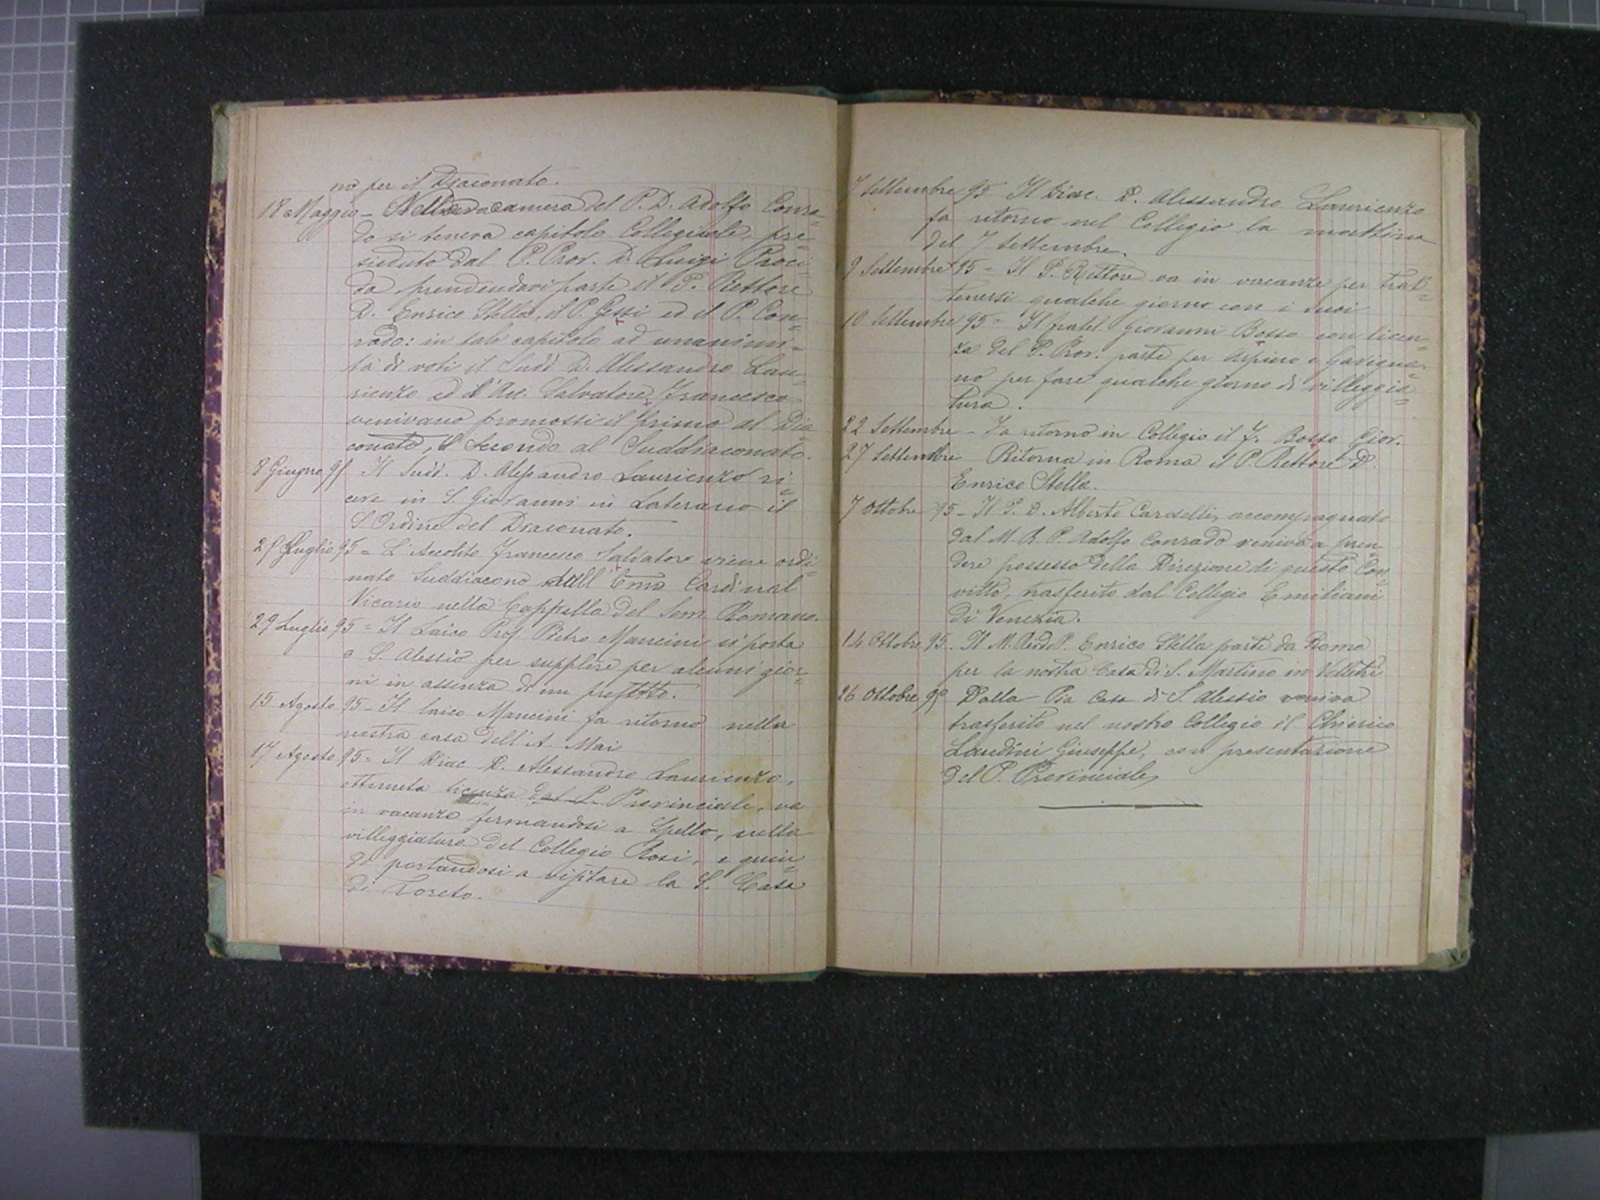 no per il Diaconato.
18 Maggio - Nella camera del P. D. Adolfo Conra=
do si teneva capitolo Collegiale, pre=
sieduto dal P. Prov. D. Luigi Proci=
da prendendovi parte il P. Rettore
D. Enrico Stella, il P. Gessi ed il P. Con=
rado: in tale capitolo ad unanimi=
tà di voti il Sudd. D. Alessandro Lau=
rienzo ed l'Acc. Salvatore Francesco
venivano promossi il primo al Dia
conato, il secondo al Suddiaconato.
8 Giugno 95 Il Sudd. D. Alessandro Laurienzo ri=
ceve in S. Giovanni in Laterano il
S. Ordine del Diaconato.
25 Luglio 95 = L'Accolito Francesco Salvatore viene ordi=
nato Suddiacono dall' Emo Cardinal
Vicario nella Cappella del Sem. Romano.
29 Luglio 95 = Il Laico Prof. Pietro Mancini si porta
a S. Alessio per supplire per alcuni gior=
ni in assenza di un prefetto.
15 Agosto 95 - Il laico Mancini fa ritorno nella
nostra casa dell'A. Mai
17 Agosto 95 = Il Diac D. Alessandro Laurienzo,
ottenuta licenza dal P. Provinciale, va
in vacanza fermandosi a Spello, nella
villeggiatura del Collegio Rosi, e quin=
di portandosi a visitare la S. Casa
di Loreto.
7 Settembre 95 - Il Diac. D. Alessandro Laurienzo
fa ritorno nel Collegio la mattina
del 7 Settembre.
9 Settembre 95 = Il P. Rettore va in vacanze per trat=
tenersi qualche giorno con i suoi
10 Settembre 95 = Il fratel Giovanni Bosso con licen=
za del P. Prov. parte per
no per fare qualche giorno di villeggia=
tura.
22 Settembre - Fa ritorno in Collegio il F. Bosso Giov.
27 Settembre - Ritorna in Roma il P. Rettore D.
Enrico Stella.
7 Ottobre 95 - Il P. D. Alberto accompagnato
dal M. R. P. Adolfo Conrado veniva a pren
dere possesso della Direzione di questo Con=
vitto, trasferito dal Collegio Emiliani
di Venezia.
14 Ottobre 95. Il M. Revdo P. Enrico Stella parte da Roma
per la nostra Casa di S. Martino in Velletri
26 Ottobre 95 Dalla Pia Casa di S. Alessio veniva
trasferito nel nostro Collegio il Chierico
Landini Giuseppe, con presentazione
del P. Provinciale,